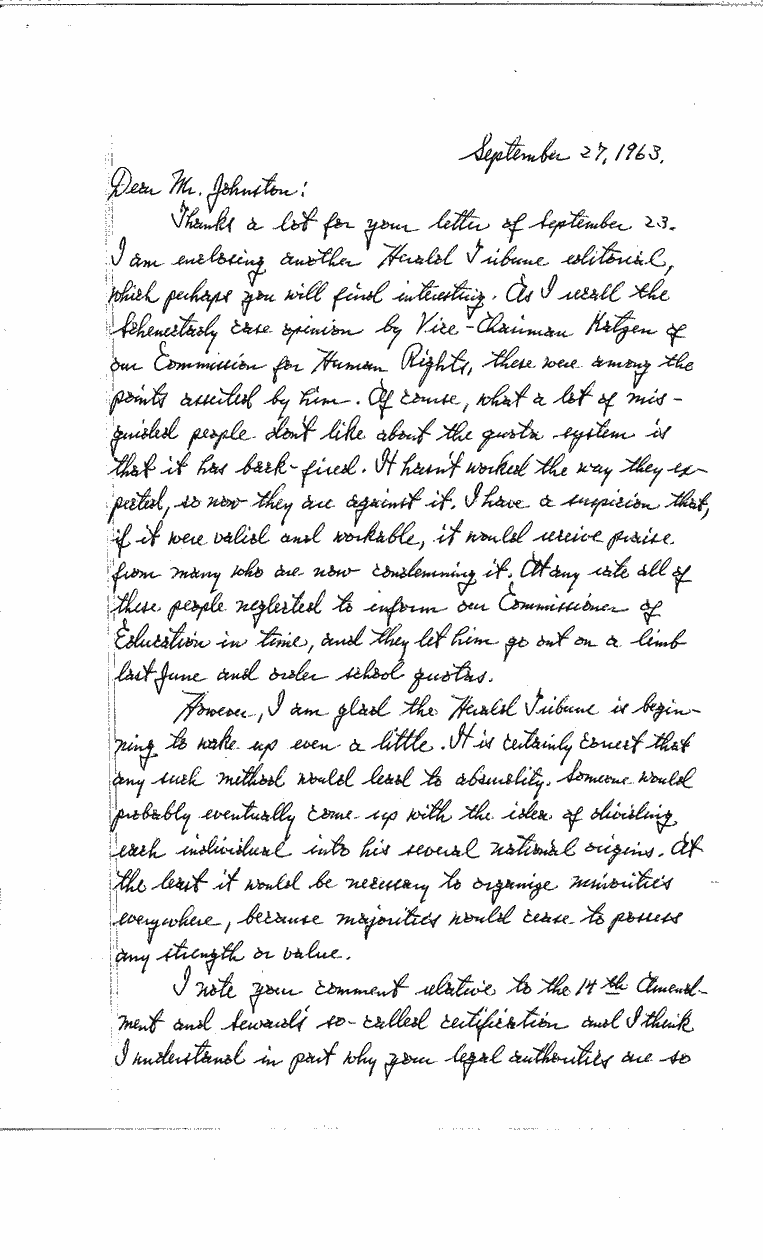 September 27, 1963.
Dear Mr. Johnston:
Thanks a lot for your letter of September 23.
I am enclosing another Herald Tribune editorial,
which perhaps you will find interesting. As I recall the
Schenectady case opinion by Vice-Chairman Katzen of
our Commission for Human Rights, these were among the
points asserted by him. Of course, what a lot of mis-
guided people don't like about the quota system is
that it has back-fired. It hasn't worked the way they ex-
pected, so now they are against it. I have a suspicion that,
if it were valid and workable, it would receive praise
from many who are now condemning it. At any rate all of
these people neglected to inform our Commissioner of
Education in time, and they let him go out on a limb
last June and order school quotas.
However, I am glad the Herald Tribune is begin-
ning to wake up even a little. It is certainly correct that
any such method would lead to absurdity. Someone would
probably eventually come up with the idea of dividing
each individual into his several national origins. At
the least it would be necessary to organize minorities
everywhere, because majorities would cease to possess
any strength or value.
I note your comment relative to the 14th Amend-
ment and Seward's so-called certification and I think
I understand in part why your legal authorities are so